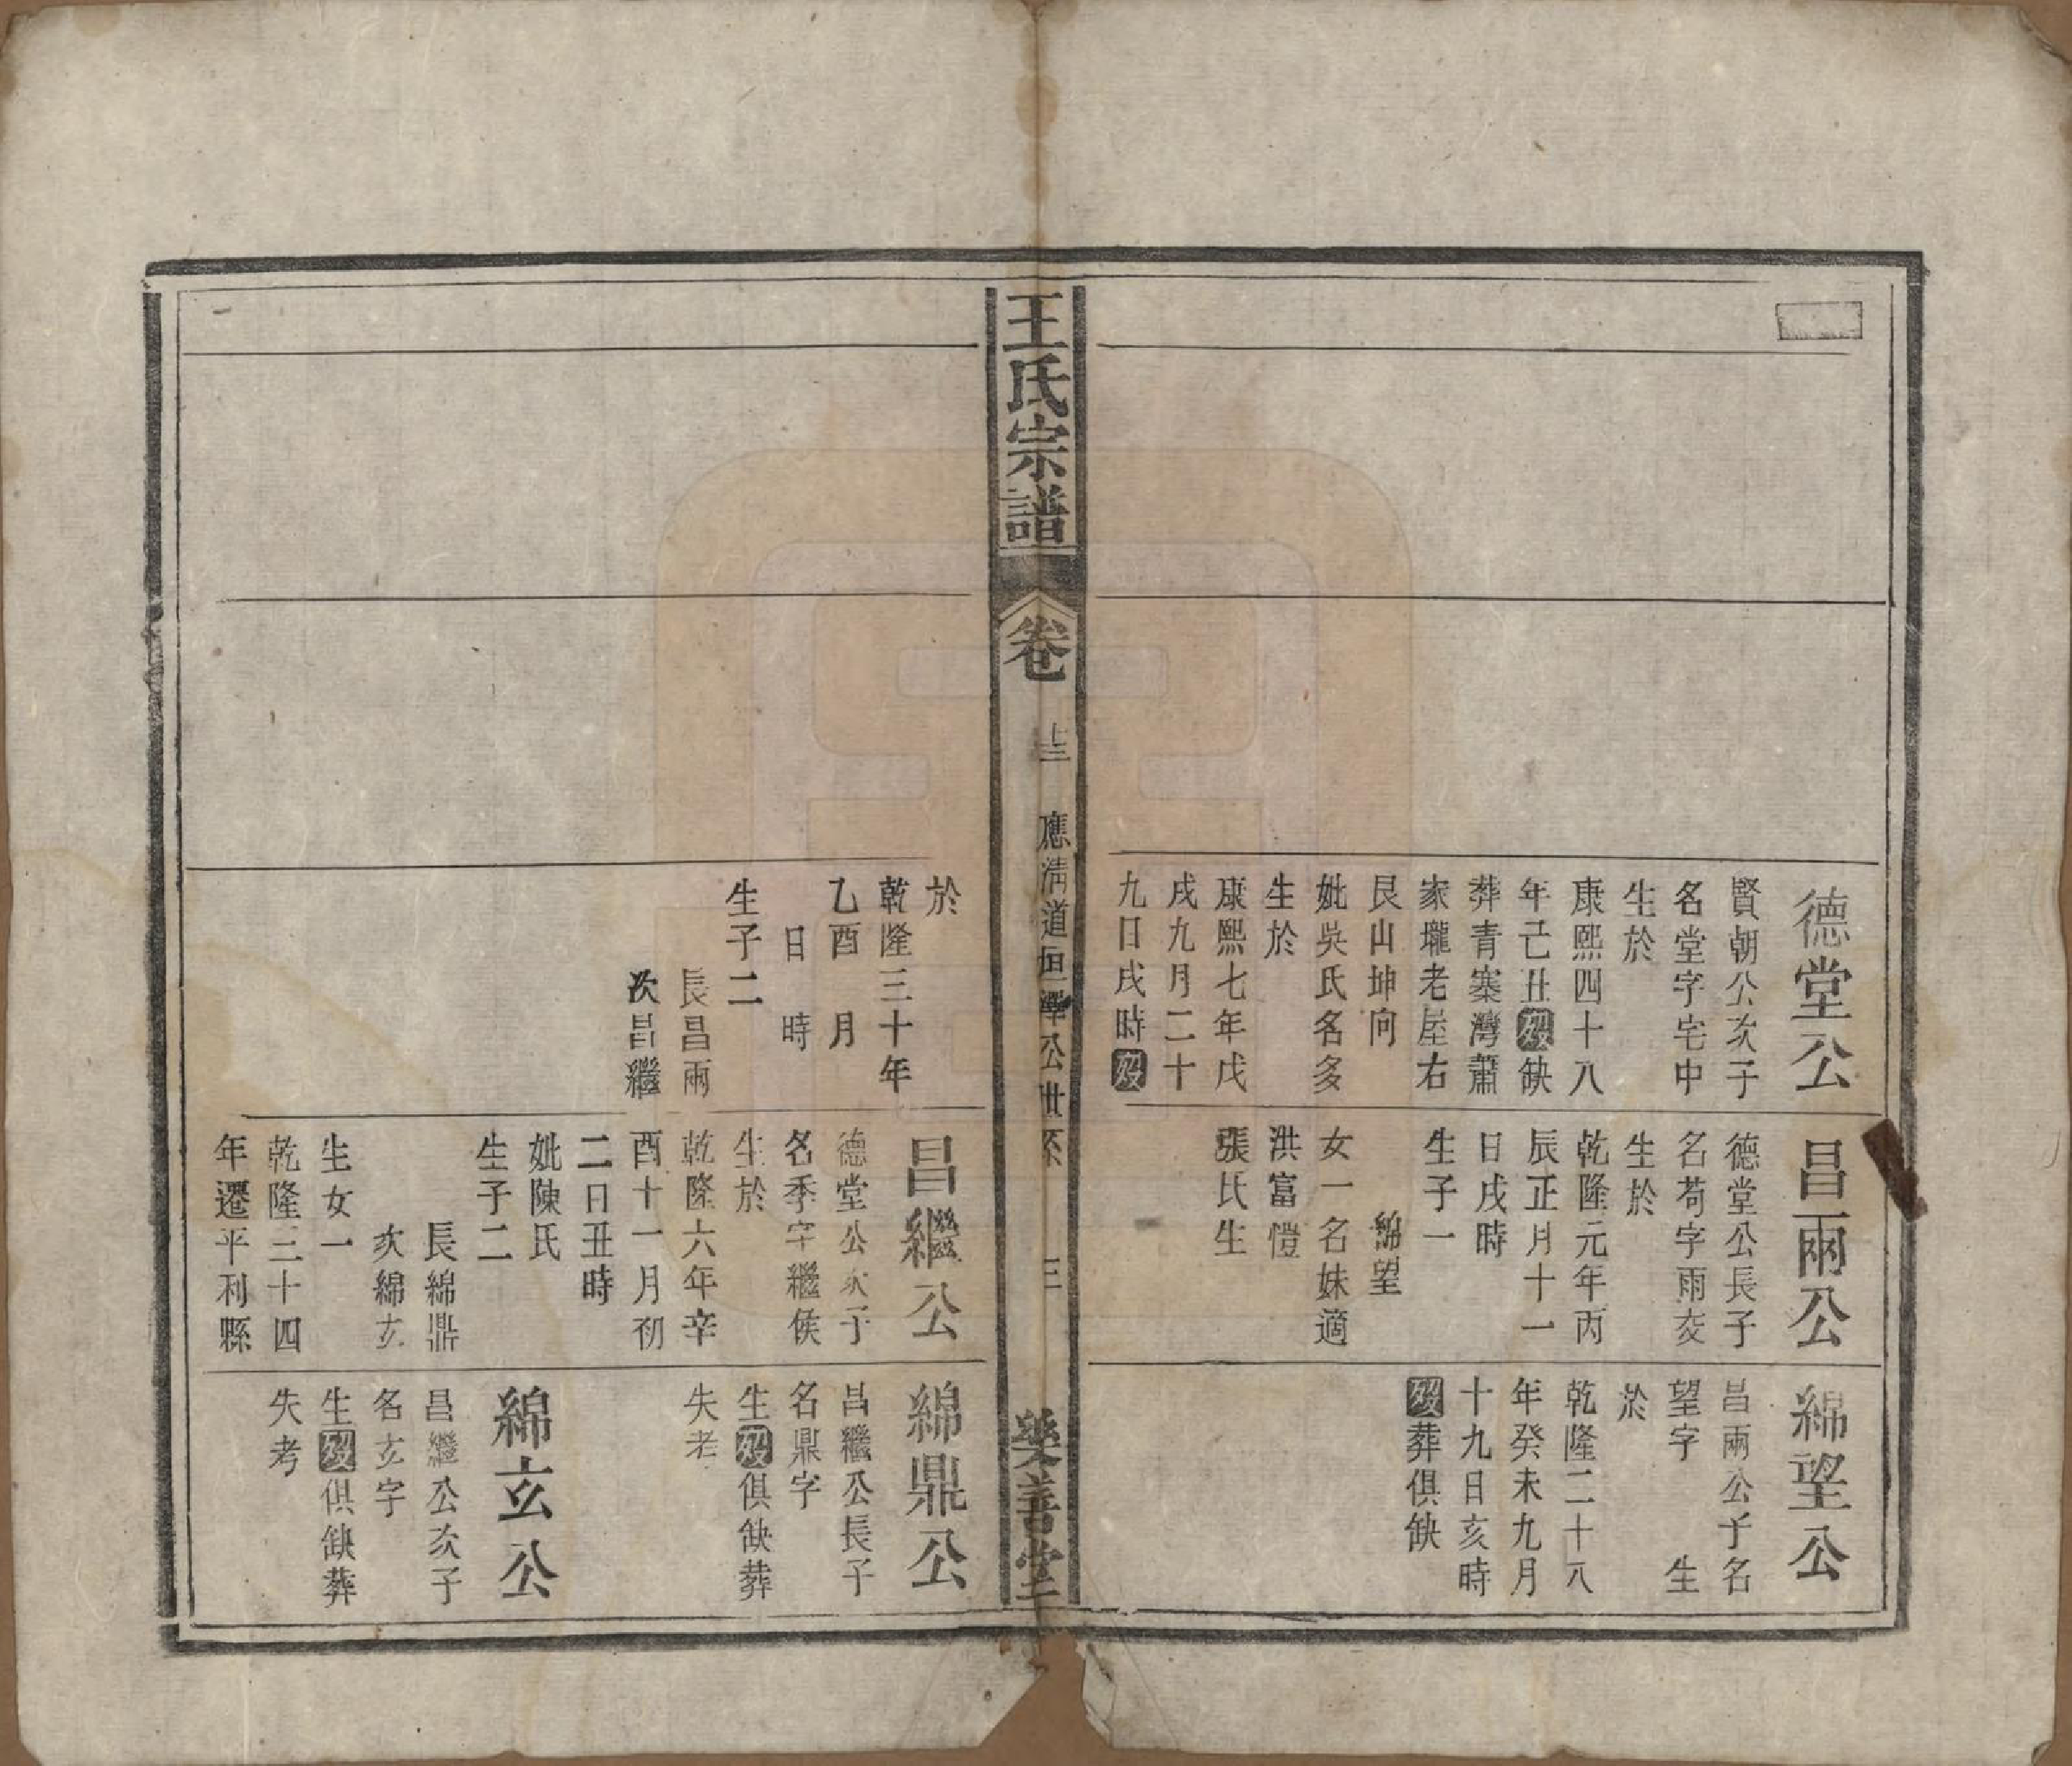 德堂公
賢朝公次子
名堂字宅中
生於
康熙四十八
年己丑歿缺
葬青寨灣蕭
家壠老屋右
艮山坤向
妣吳氏名多
生於
康熙七年戊
戌九月二十
九日戌時歿
昌兩公
德堂公長子
名苟字雨亥
生於
乾隆元年丙
辰正月十一
日戌時
生子一
綿望
女一名妹適
洪富愷
張氏生
綿望公
昌兩公子名
望字　　生
於
乾隆二十八
年癸未九月
十九日亥時
歿葬俱缺
王氏宗譜
卷
十三
應淸道恒澤公世系
三
樂善堂
於
乾隆三十年
乙酉　月
日　時
生子二
長昌兩
次昌繼
昌繼公
德堂公次子
名季字繼侯
生於
乾隆六年辛
酉十一月初
二日丑時
妣陳氏
生子二
長綿鼎
次綿玄
生女一
乾隆三十四
年遷平利縣
綿鼎公
昌繼公長子
名鼎字
生歿俱缺葬
失考
綿玄公
昌繼公次子
名玄字
生歿俱缺葬
失考